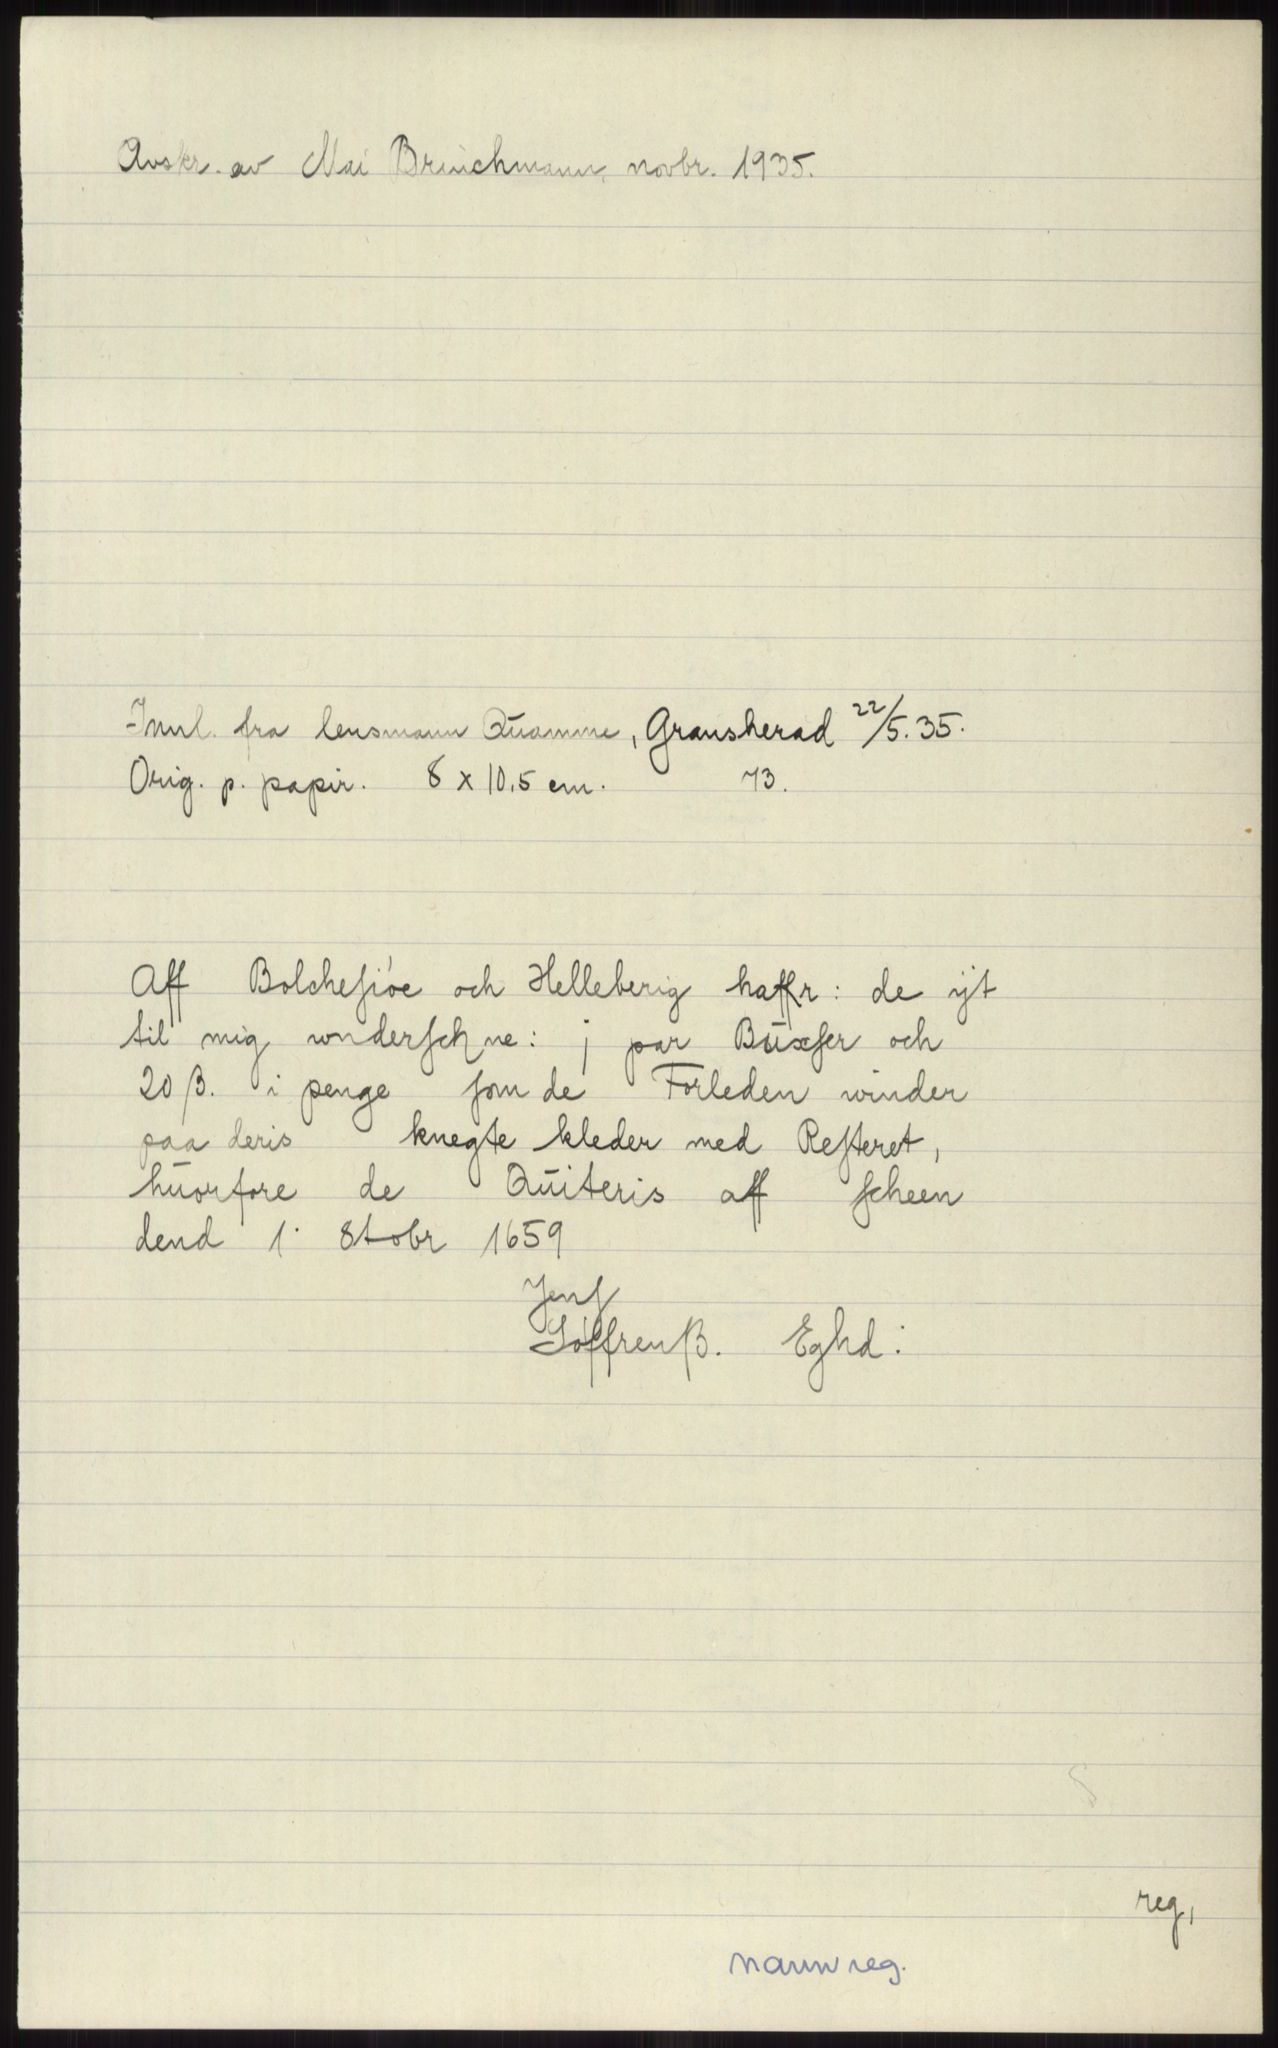 Avskr. av Mai Brinchmann, novbr. 1935.
Innl. fra lensmann Quamme, Gransherad 22/5.35.
Orig. p. papir. 8 x 10,5 cm. 73.
Aff Bolchesiøe och Helleberig haffr: de ÿt
til mig wnderschne: j par Büxser och
20 β. i penge som de Forleden winder
paa deris knegte kleder med Resteret,
huorfore de Quiteris aff scheen
dend 1. 8tobr 1659
Jens
Söffrenß. Eghd:
reg,
navn reg.